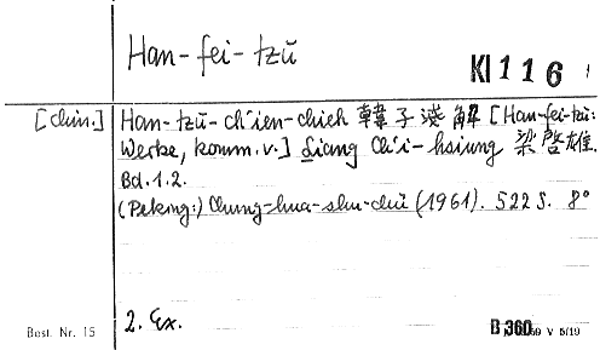 Han-fei-tzŭ
KI 116
[chin.] Han-tzŭ-ch'ien-chieh 韓子淺解 [Han-fei-tzŭ:
Werke, komm. v.] Liang Ch'i-hsiung 梁啓雄.
Bd. 1.2.
(Peking:) Chung-hua-shu-chü (1961). 522 S. 8°
2. Ex.
Best. Nr. 15
B 360 V 5/19